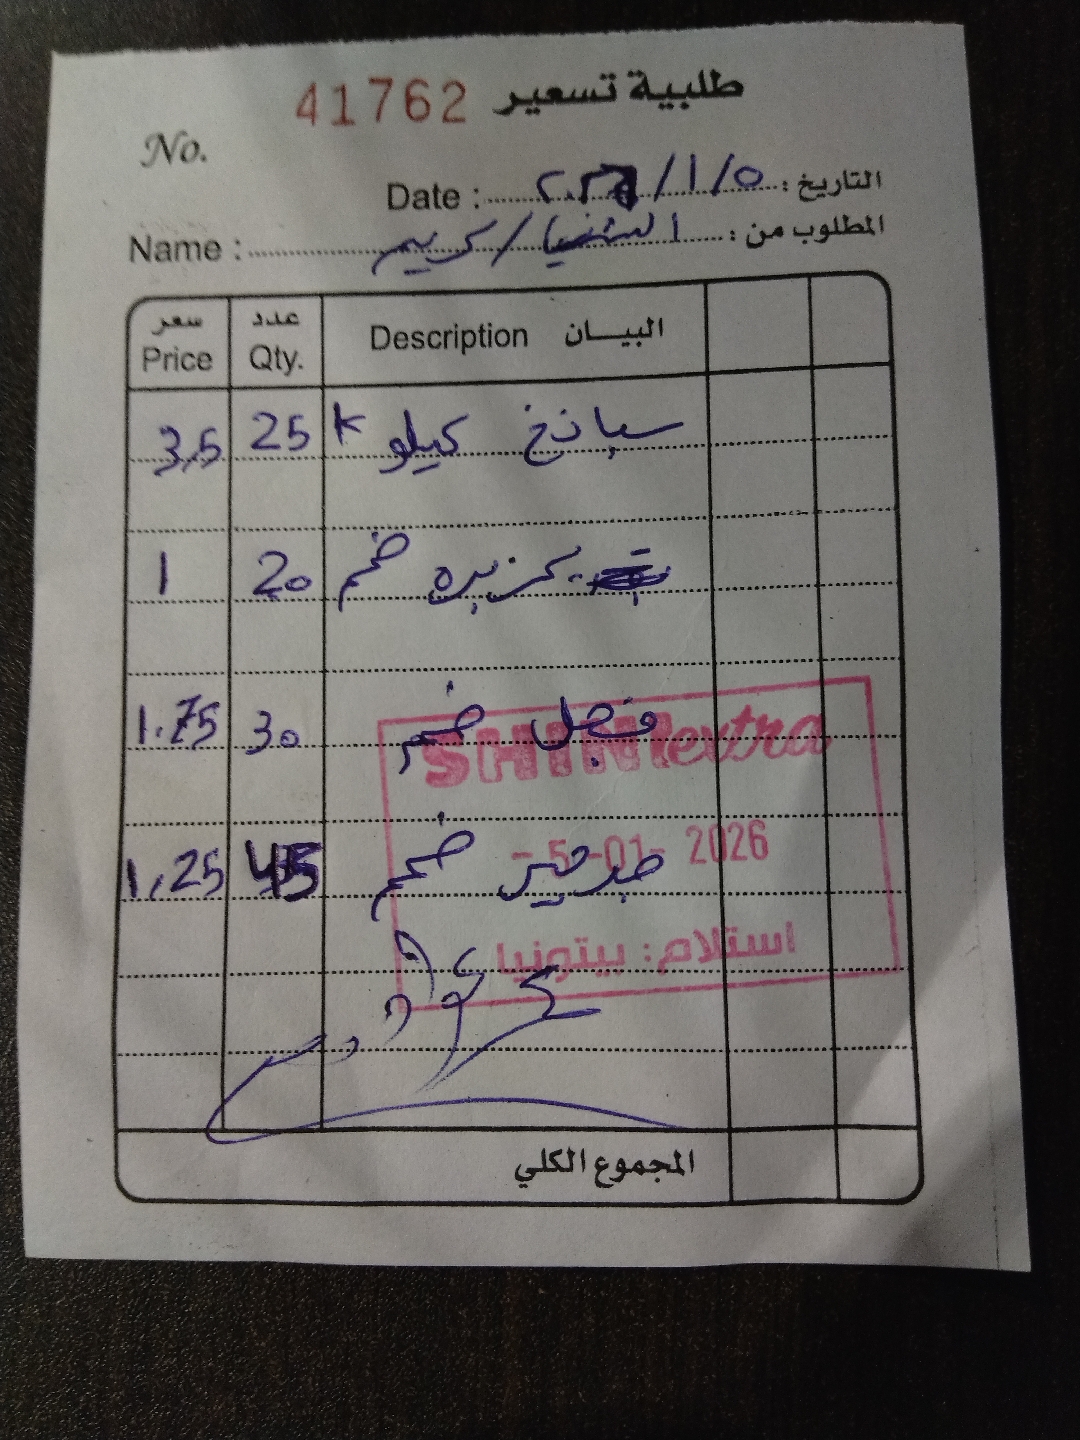 طلبية تسعير 41762
No.
التاريخ : ٢٠٢٦/١/٥ Date :
المطلوب من : / كريم Name :
البيـــان Description عدد Qty. سعر Price
سبانخ كيلو K 25 3,5
كزبره ضم 20 1
فجل ضم 30 1.75
جرجير ضم 45 1,25
SHINI extra
- 5 -01- 2026
استلام: بيتونيا
المجموع الكلي